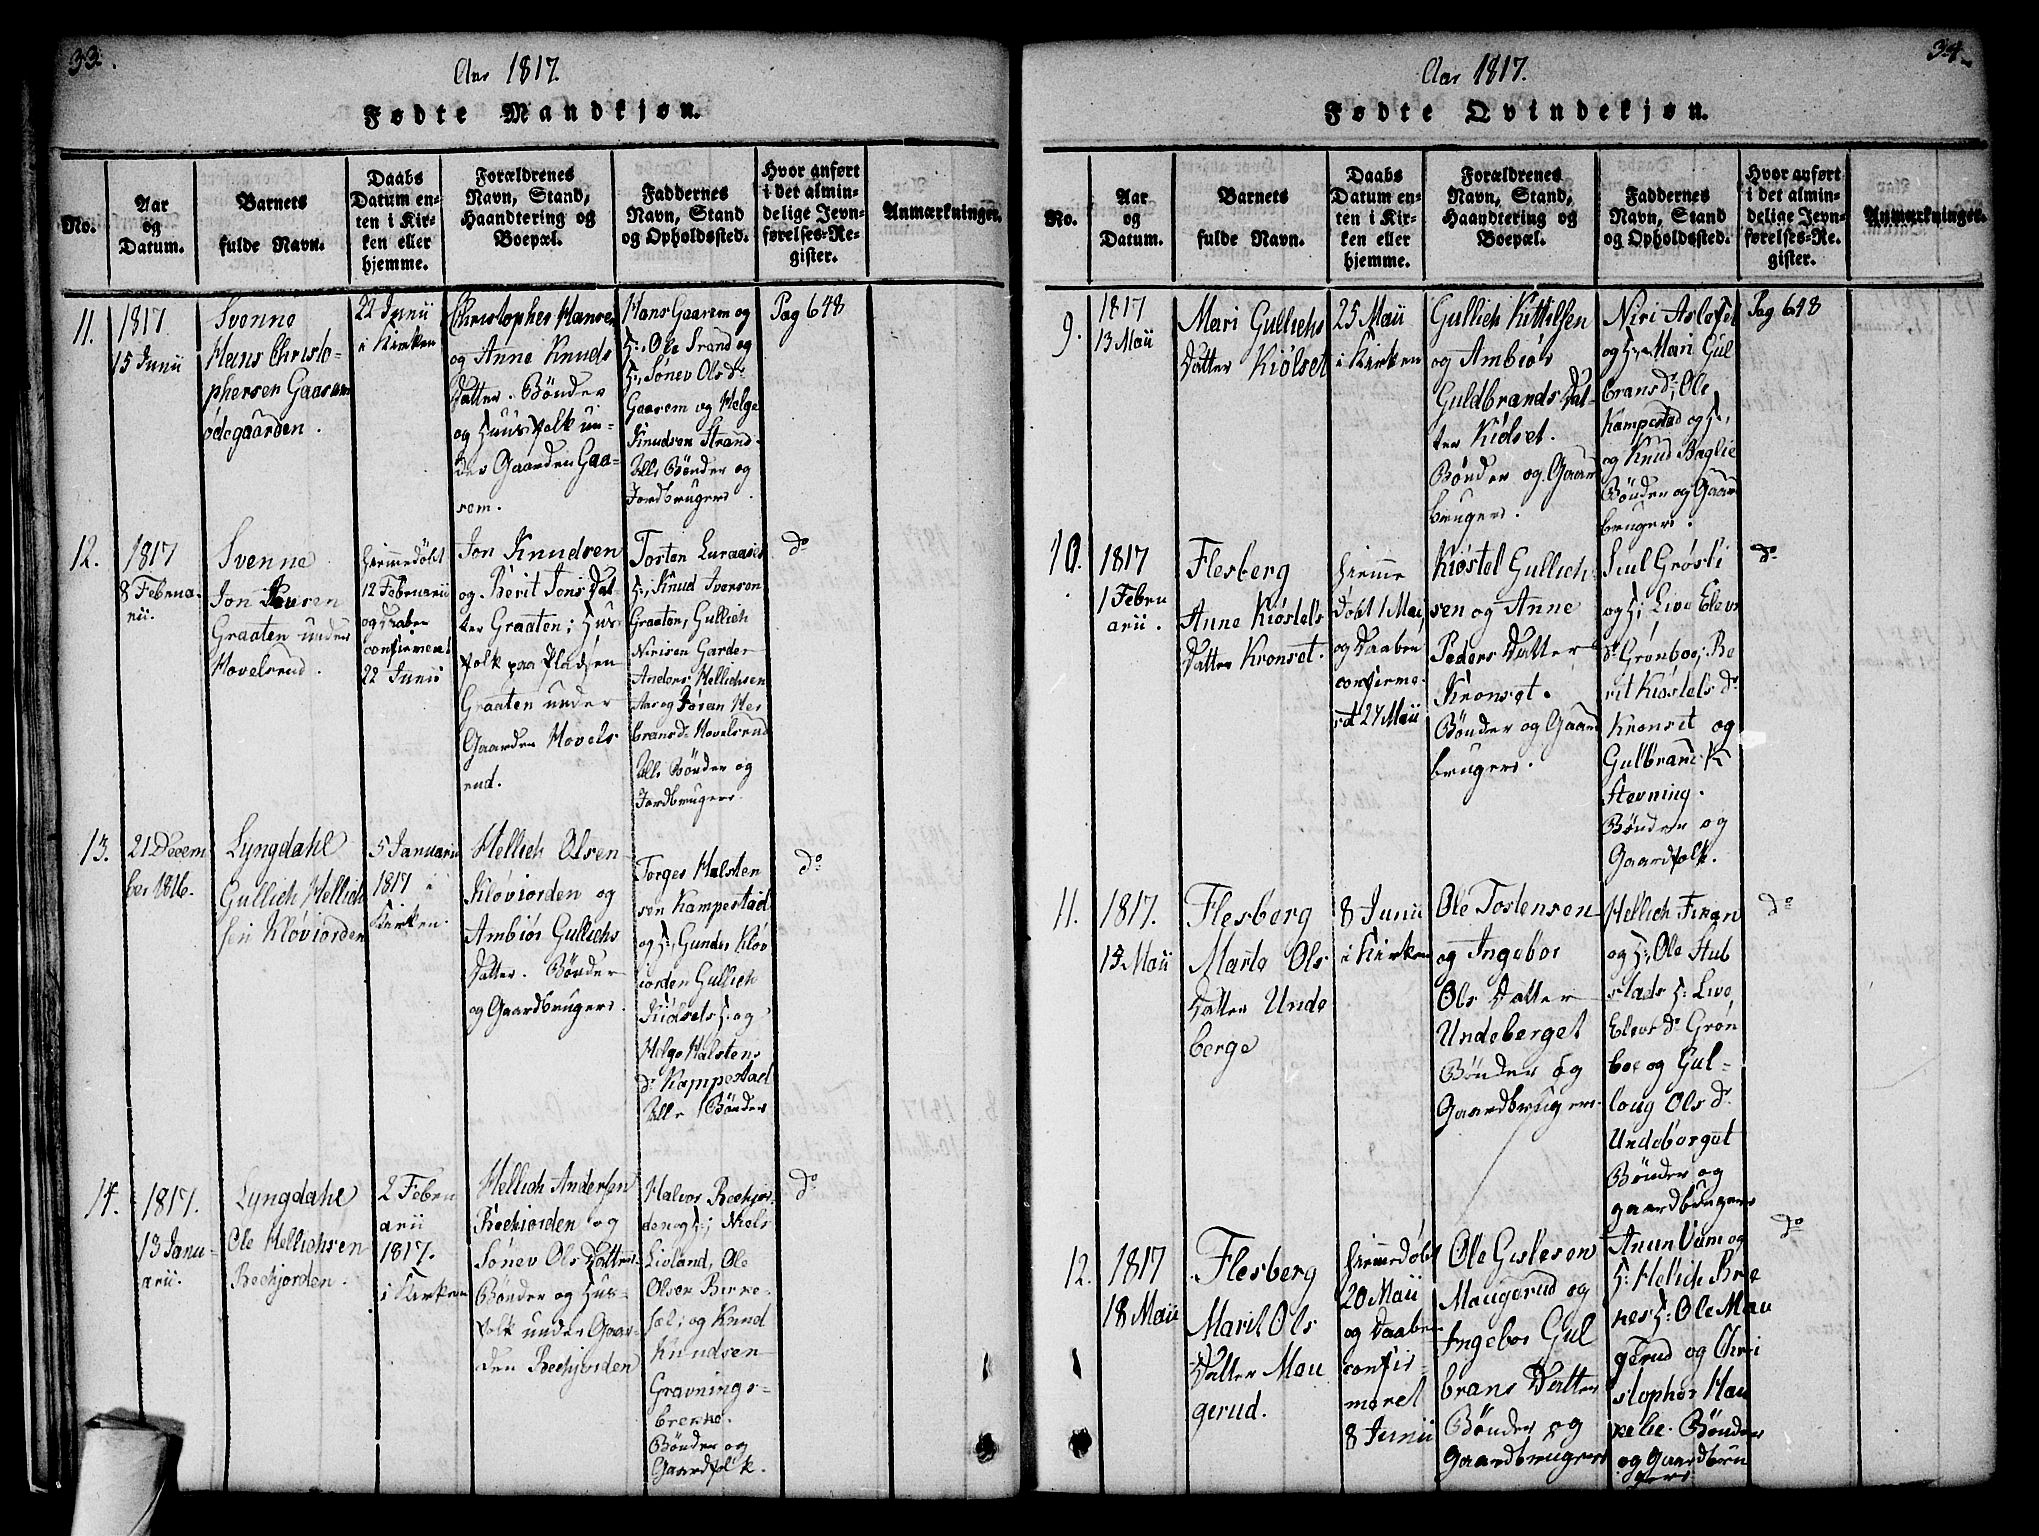 33.
Aar 1817.
Fødte Mandkjøn.
No.
Aar
og
Datum.
Barnets
fulde Navn.
Daabs
Datum en-
ten i Kir-
ken eller
hjemme.
Forældrenes
Navn, Stand,
Haandtering og
Boepæl.
Faddernes
Navn, Stand
og Opholdssted.
Hvor anført
i det almin-
delige Jevn-
førelses-Re-
gister.
Anmærkninger.
11.
1817.
15 Junii
Svenne
Hans Christo-
phersen Gaasem
ødegaarden.
22 Junii
i Kirken
Christopher Hansen
og Anne Knuds
Datter. Bønder
og Huusfolk un-
der Gaarden Gaa-
sem.
Hans Gaasem og
H:, Ole Strand og
H:, Sønev Ols Dr
Gaasem og Helge
Knudsen Strand.
Alle Bønder og
Jordbrugere.
Pag 648
12.
1817
8 Februa-
rii.
Svenne
Jon Jonsen
Graaten under
Hovelsrud.
hjemmedøbt
12 Februarii
og Daaben
confirmeret
22 Junii
Jon Knudsen
og Berit Jons Dat-
ter Graaten; Hus-
folk paa Pladsen
Graaten under
Gaarden Hovels
rud.
Torsten Luraases
H:, Knud Iversen
Graaten, Gullich
Nirisen Garder
Anders Hellichsen
Aas og Jøran Her
bransd: Hovelsrud
Alle Bønder og
Jordbrugere.
do
13.
21 Decem
ber 1816.
Lyngdahl
Gullich Hellich
sen Kløviorden
5 Januarii
1817 i
Kirken.
Hellich Olsen
Kløviorden og
Ambiør Gullichs
Datter. Bønder
og Gaardbrugere.
Torger Halsten
sen Kampestad
og H:, Gunder Kløv
iorden Gullich
Kiølsets H: og
Helge Halstens
dr Kampestad
Alle Bønder
do
14.
1817.
13 Janu-
arii.
Lyngdahl
Ole Hellichsen
Bechjorden.
2 Febru
arii
1817.
i Kirken
Hellich Andersen
Bechjorden og
Sønev Ols Datter
Bønder og Hus-
folk under Gaar-
den Bechjorden
Halvor Bechjor-
den og H:; Niels
Lioland, Ole
Olsen Berre-
fæl; og Knud
Knudsen
Gravnings-
brenne.
Bønder og
Gaardfolk.
do
34.
Aar 1817.
Fødte Qvindekjøn.
No.
Aar
og
Datum.
Barnets
fulde Navn.
Daabs
Datum en-
ten i Kir-
ken eller
hjemme.
Forældrenes
Navn, Stand,
Haandtering og
Boepæl.
Faddernes
Navn, Stand
og Opholdssted.
Hvor anført
i det almin-
delige Jevn-
førelses-Re-
gister.
Anmærkninger.
9.
1817
13 Maii
Mari Gullichs
Datter Kiølset
25 Maii
i Kirken
Gullich Kittilsen
og Ambiør
Guldbrands Dat-
ter Kiølset.
Bønder og Gaard
brugere.
Niri Aslefet
og H:, Mari Gul
bransdr, Ole
Kampestad og H:,
og Knud Baglie
Bønder og Gaard
brugere.
Pag 648
10.
1817
1 Febru
arii.
Flesberg
Anne Kiøstels
Datter Kronset.
hiemme
døbt 1 Maii,
og Daaben
confirme-
ret 27 Maii
Kiøstel Gullich-
sen og Anne
Peders Datter
Kronset.
Bønder og Gaard
brugere.
Juul Grøsli
og H; Live Elevs
dr Grønboe; Be
rit Kiøstels dr
Kronset og
Gulbrand K
Stevning.
Bønder og
Gaardfolk.
do
11.
1817.
13 Maii
Flesberg
Marte Ols
Datter Unde
berge
8 Junii
i Kirken
Ole Tostensen
og Ingebor
Ols Datter
Undeberget
Bønder og
Gaardbrugere.
Hellich Finan
og H:, Ole Stub
stads H: Live,
Elevs dr Grøn
boe og Gul-
loug Ols dr
Undeberget
Bønder og
gaardbrugere
do
12.
1817
18 Maii
Flesberg
Marit Ols
Datter Mau
gerud.
hiemmedøbt
20 Maii
og Daaben
confir-
meret
8 Junii
Ole Gislesen
Maugerud og
Ingebor Gul
brans Datter
Bønder og
Gaardbrugere
Anun Vam og
H: Hellich Bre
nes H: Ole Mau
gerud og Chri
stopher Hau
kelie. Bønder
og Gaardbru
gere
do